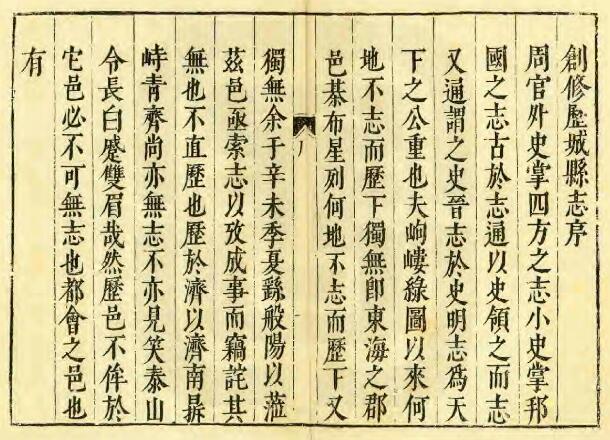 創修歷城縣志序
周官外史掌四方之志小史掌邦
國之志古於志通以史領之而志
又通謂之史晉志於史明志爲天
下之公重也夫岣嶁綠圖以來何
地不志而歷下獨無卽東海之郡
邑棊布星列何地不志而歷下又
獨無余于辛未季夏繇般陽以蒞
茲邑亟索志以攷成事而竊詫其
無也不直歷也歷於濟以濟南鼎
峙青齊尚亦無志不亦見笑泰山
令長白蹙雙眉哉然歷邑不侔於
它邑必不可無志也都會之邑也
有